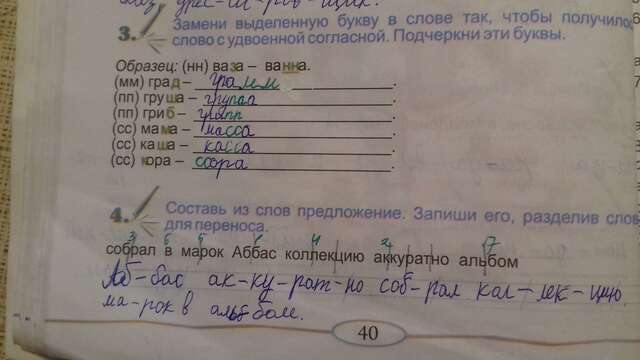 3. Замени выделенную букву в слове так, чтобы получилось
слово с удвоенной согласной. Подчеркни эти буквы.
Образец: (нн) ваза – ванна.
(мм) град – грамм.
(пп) груша – группа.
(пп) гриб – грипп.
(сс) мама – масса.
(сс) каша – касса.
(сс) кора – ссора.
4. Составь из слов предложение. Запиши его, разделив слов
для переноса.
3 6 5 1 4 2 7
собрал в марок Аббас коллекцию аккуратно альбом
Аб-бас ак-ку-рат-но соб-рал кол-лек-цию
ма-рок в аль-бом.
40